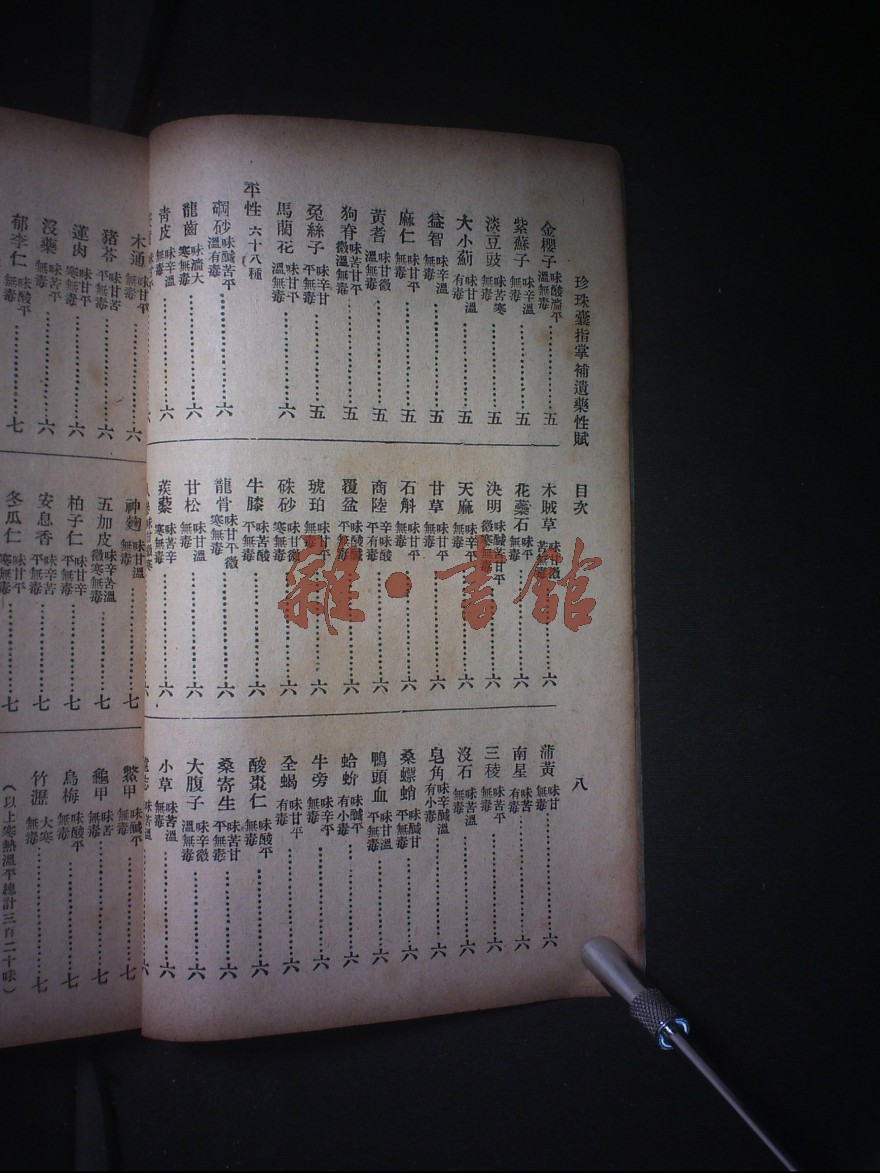 珍珠囊指掌補遺藥性賦 目次 八
金櫻子 味酸濇平溫無毒 五
紫蘇子 味辛溫無毒 五
淡豆豉 味苦寒無毒 五
大小薊 味甘溫有毒 五
益智 味辛溫無毒 五
麻仁 味甘平無毒 五
黃耆 味甘微溫無毒 五
狗脊 味苦平微溫無毒 五
兔絲子 味辛甘平無毒 五
馬藺花 味甘平溫無毒 六
平性 六十八種
硇砂 味鹹苦平溫有毒 六
龍齒 味濇大寒無毒 六
青皮 味辛溫無毒 六
木賊草 味甘微苦無毒 六
花蕊石 味平無毒 六
決明 味鹹苦甘平微寒無毒 六
天麻 味辛平無毒 六
甘草 味甘平無毒 六
石斛 味甘平無毒 六
商陸 辛味酸平有毒 六
覆盆 味甘酸平無毒 六
琥珀 味甘平無毒 六
硃砂 味甘微寒無毒 六
牛膝 味苦酸平無毒 六
龍骨 味甘平微寒無毒 六
甘松 味甘溫無毒 六
蒺藜 味苦辛寒無毒 六
蒲黃 味甘無毒 六
南星 味苦有毒 六
三稜 味苦平無毒 六
沒石 味苦溫無毒 六
皂角 味辛鹹溫有小毒 六
桑螵蛸 味鹹甘平無毒 六
鴨頭血 味甘溫平無毒 六
蛤蚧 味鹹平有小毒 六
牛旁 味辛平無毒 六
全蝎 味甘平有毒 六
酸棗仁 味酸平無毒 六
桑寄生 味苦甘平無毒 六
大腹子 味辛微溫無毒 六
小草 味苦溫無毒 六
木通 味甘平無毒 六
豬苓 味甘苦平無毒 六
蓮肉 味甘平寒無毒 六
沒藥 味苦平無毒 六
郁李仁 味酸平無毒 七
神麴 味甘溫無毒 七
五加皮 味辛苦溫微寒無毒 七
柏子仁 味甘辛平無毒 七
安息香 味辛苦平無毒 七
冬瓜仁 味甘平寒無毒 七
鱉甲 味鹹平無毒 七
龜甲 味苦無毒 七
烏梅 味酸平無毒 七
竹瀝 大寒無毒 七
（以上寒熱溫平總計三百二十味）
雜·書館